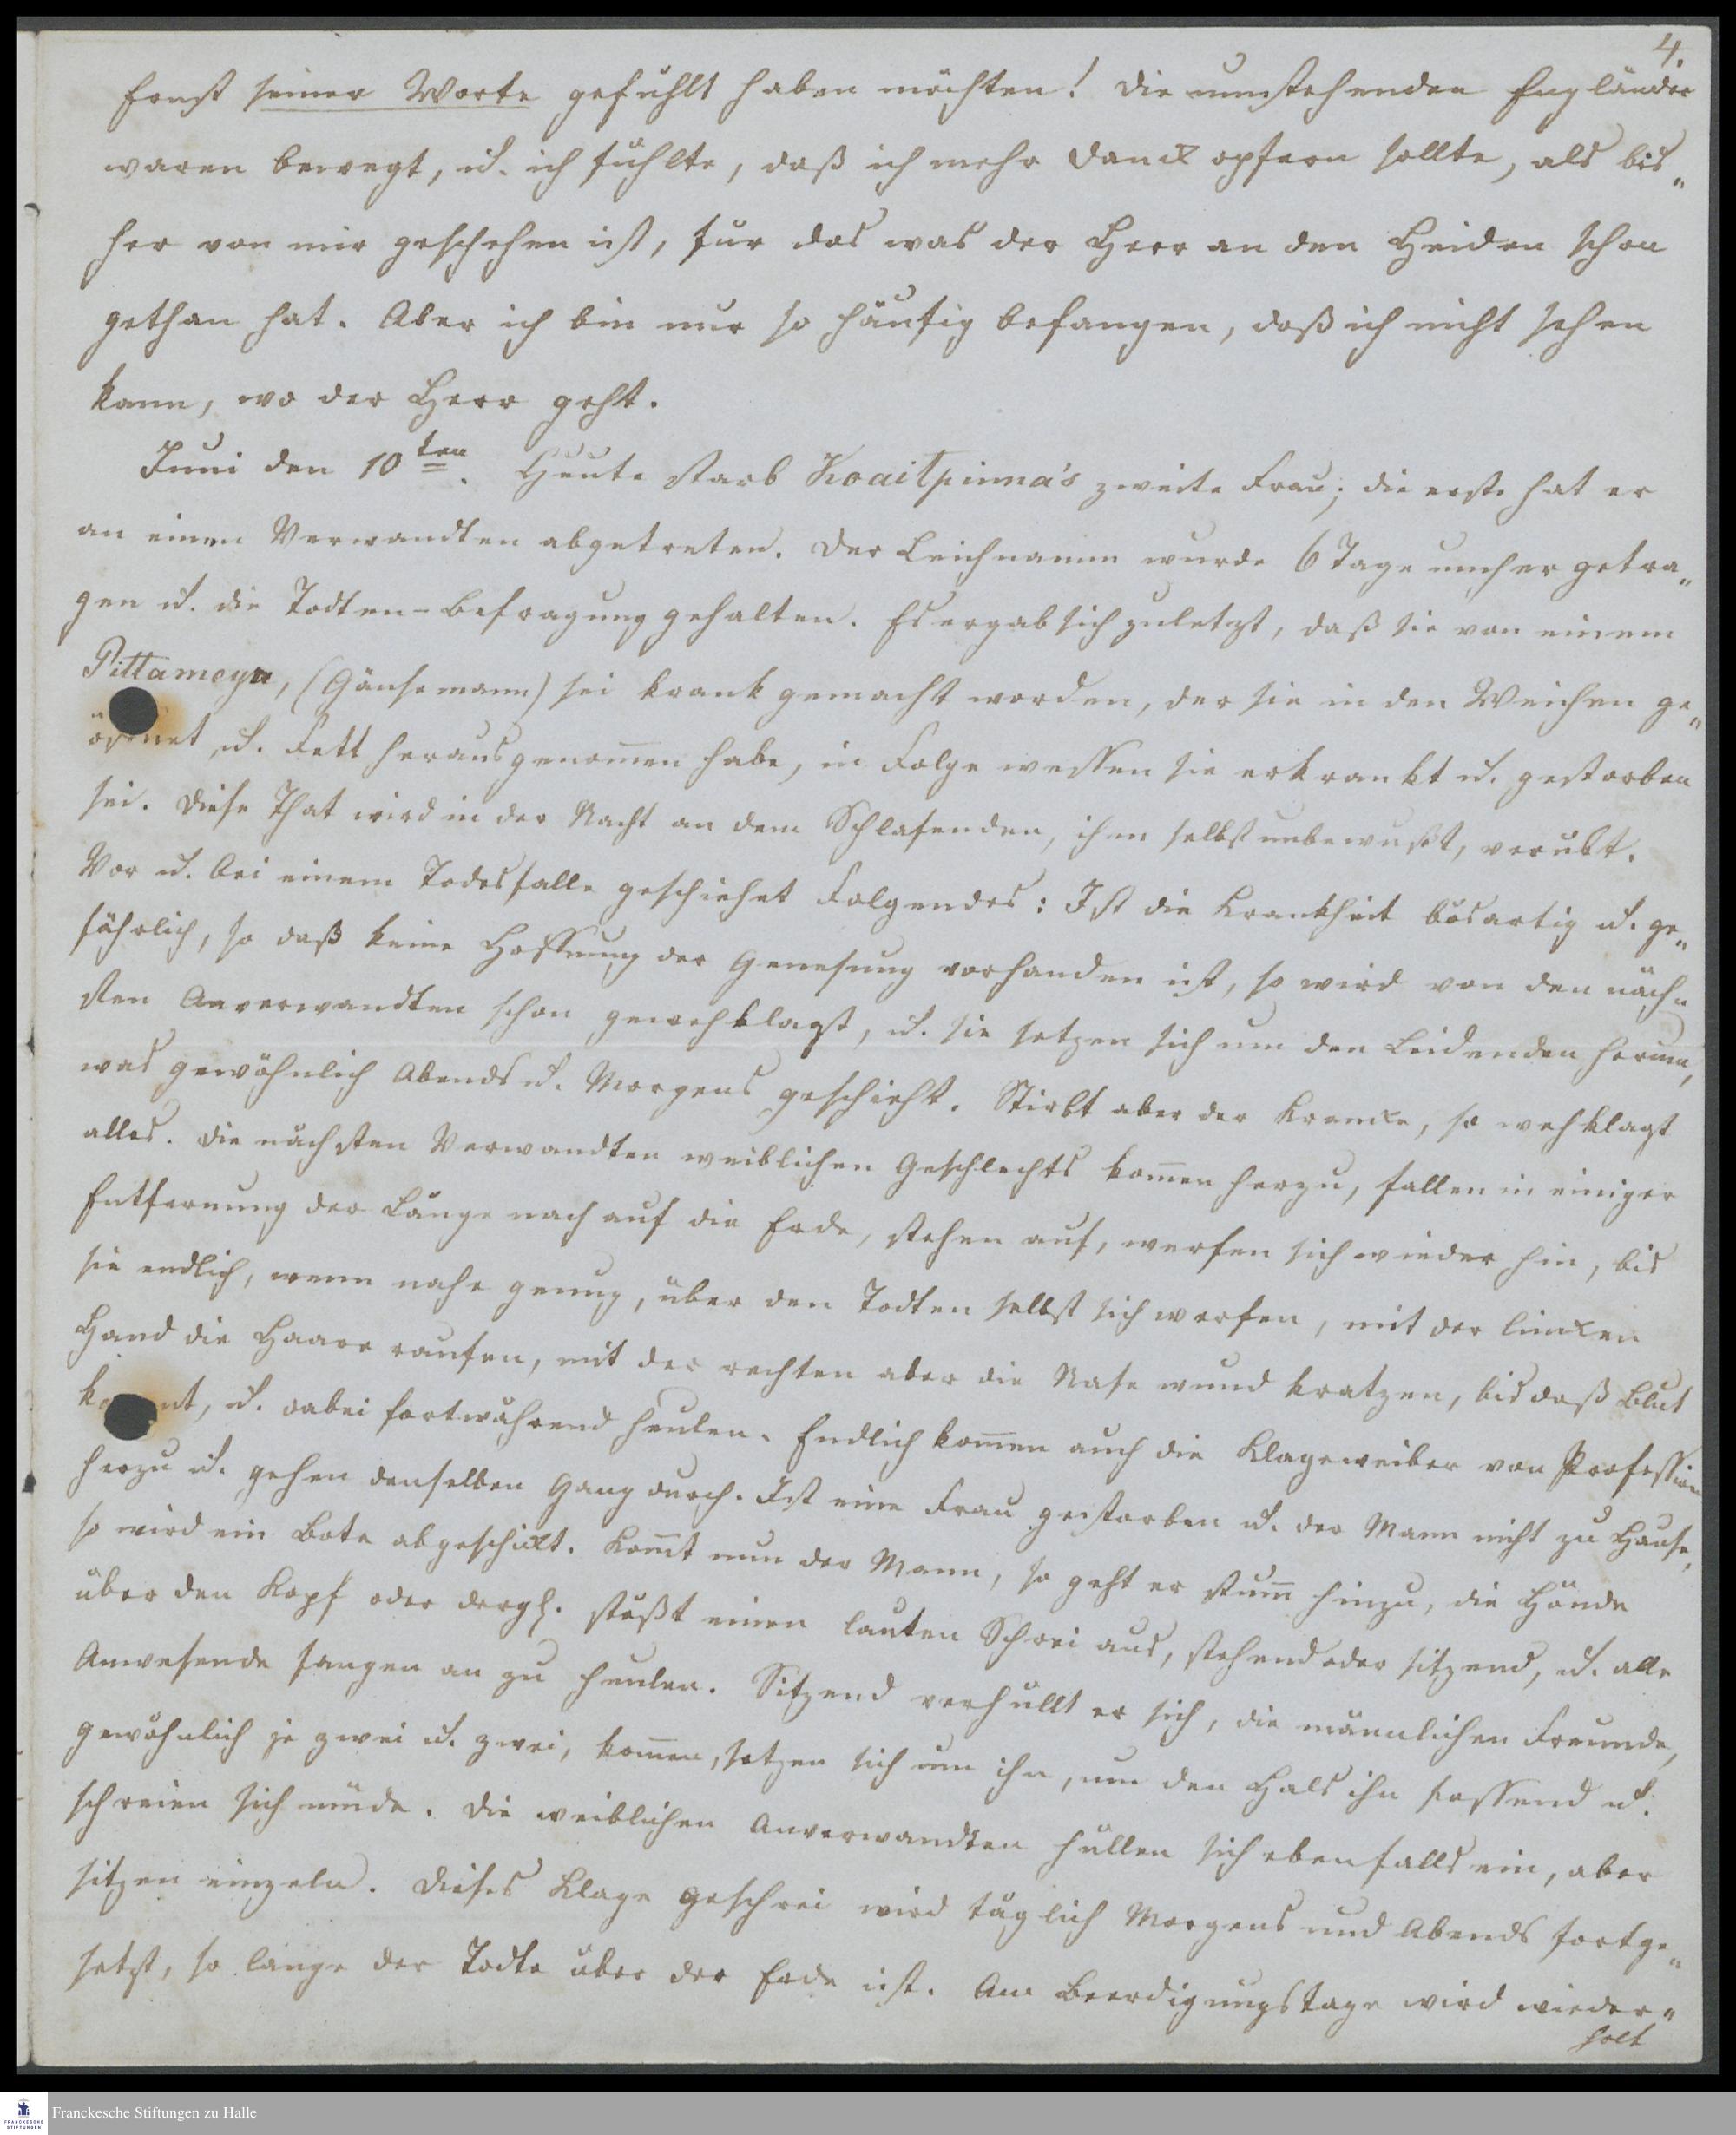 4.
Ernst seiner Worte gefühlt haben möchten! Die umstehenden Engländer
waren bewegt, u. ich fühlte, daß ich mehr Danck opfern sollte, als bis„
her von mir geschehen ist, fur das was der Herr an den Heiden schon
gethan hat. Aber ich bin nur so häufig befangen, daß ich nicht sehen
kann, wo der Herr geht.
Juni den 10ten. Heute starb Koaitpinna's zweite Frau; die erste hat er
an einen Verwandten abgetreten. Der Leichnamm wurde 6 Tage umher getra„
gen u. die Todten-Befragung gehalten. Es ergab sich zuletzt, daß sie von einem
Pittameyu, (Gänsemann) sei krank gemacht worden, der sie in den Weichen ge„
öffnet, u. Fett herausgenom̄en habe, in Folge wessen sie erkrankt u. gestorben
sei. Diese That wird in der Nacht an dem Schlafenden, ihm selbst unbewußt, verübt.
Vor u. bei einem Todesfalle geschiehet Folgendes: Ist die Krankheit bösartig u. ge„
fährlich, so daß keine Hoffnung der Genesung vorhanden ist, so wird von den näch„
sten Anverwandten schon gewehklagt, u. sie setzen sich um den Leidenden herum,
was gewöhnlich Abends u. Morgens geschieht. Stirbt aber der Krancke, so wehklagt
alles. Die nächsten Verwandten weiblichen Geschlechts kom̄en herzu, fallen in einiger
Entfernung der Länge nach auf die Erde, stehen auf, werfen sich wieder hin, bis
sie endlich, wenn nahe genug, über den Todten selbst sich werfen, mit der lincken
Hand die Haare raufen, mit der rechten aber die Nase wund kratzen, bis daß Blut
kommt, u. dabei fortwährend heulen. Endlich kom̄en auch die Klageweiber von Profession
herzu u. gehen denselben Gang durch. Ist eine Frau gestorben u. der Mann nicht zu Hause,
so wird ein Bote abgeschickt. Kom̄t nun der Mann, so geht er stum̄ hinzu, die Hände
über den Kopf oder dergl. stößt einen lauten Schrei aus, stehend oder sitzend, u. alle
Anwesende fangen an zu heulen. Sitzend verhüllt er sich, die männlichen Freunde,
gewöhnlich je zwei u. zwei, kom̄en, setzen sich um ihn, um den Hals ihn fassend u.
schreien sich müde. Die weiblichen Anverwandten hüllen sich ebenfalls ein, aber
sitzen einzeln. Dieses Klage geschrei wird täglich Morgens und Abends fortge„
setzt, so lange der Todte über der Erde ist. Am Beerdigungstage wird wieder„
holt
FRANCKESCHE
STIFTUNGEN
Franckesche Stiftungen zu Halle